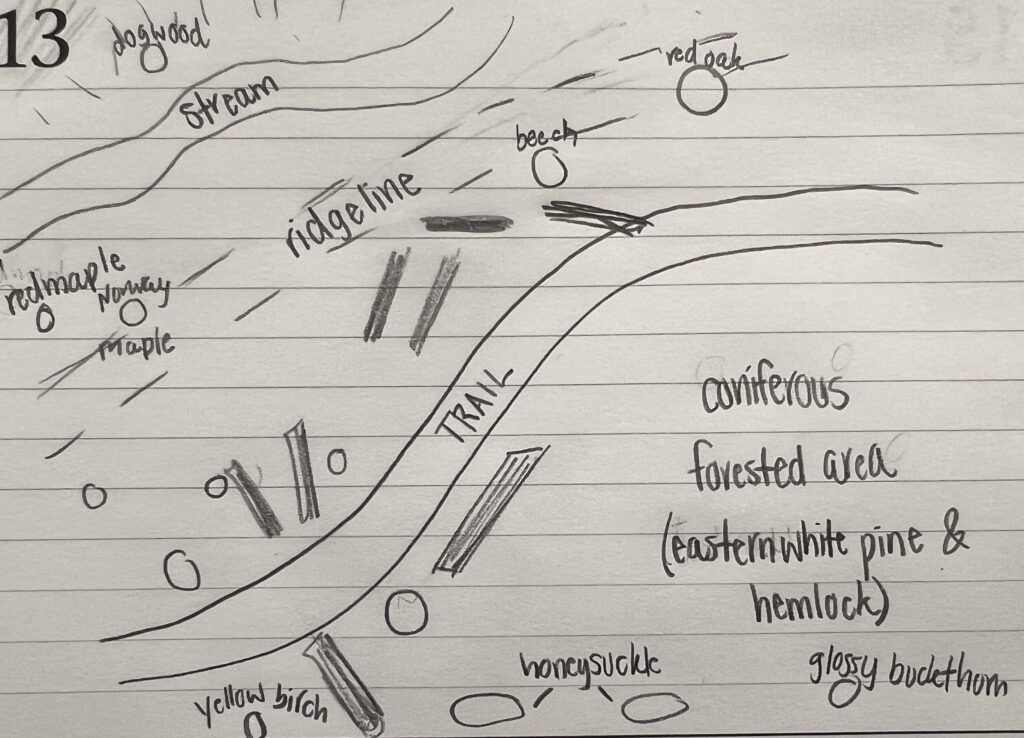 13
dogwood
stream
red oak
beech
ridgeline
red maple
Norway
maple
TRAIL
coniferous
forested area
(eastern white pine &
hemlock)
honeysuckle
glossy buckthorn
yellow birch